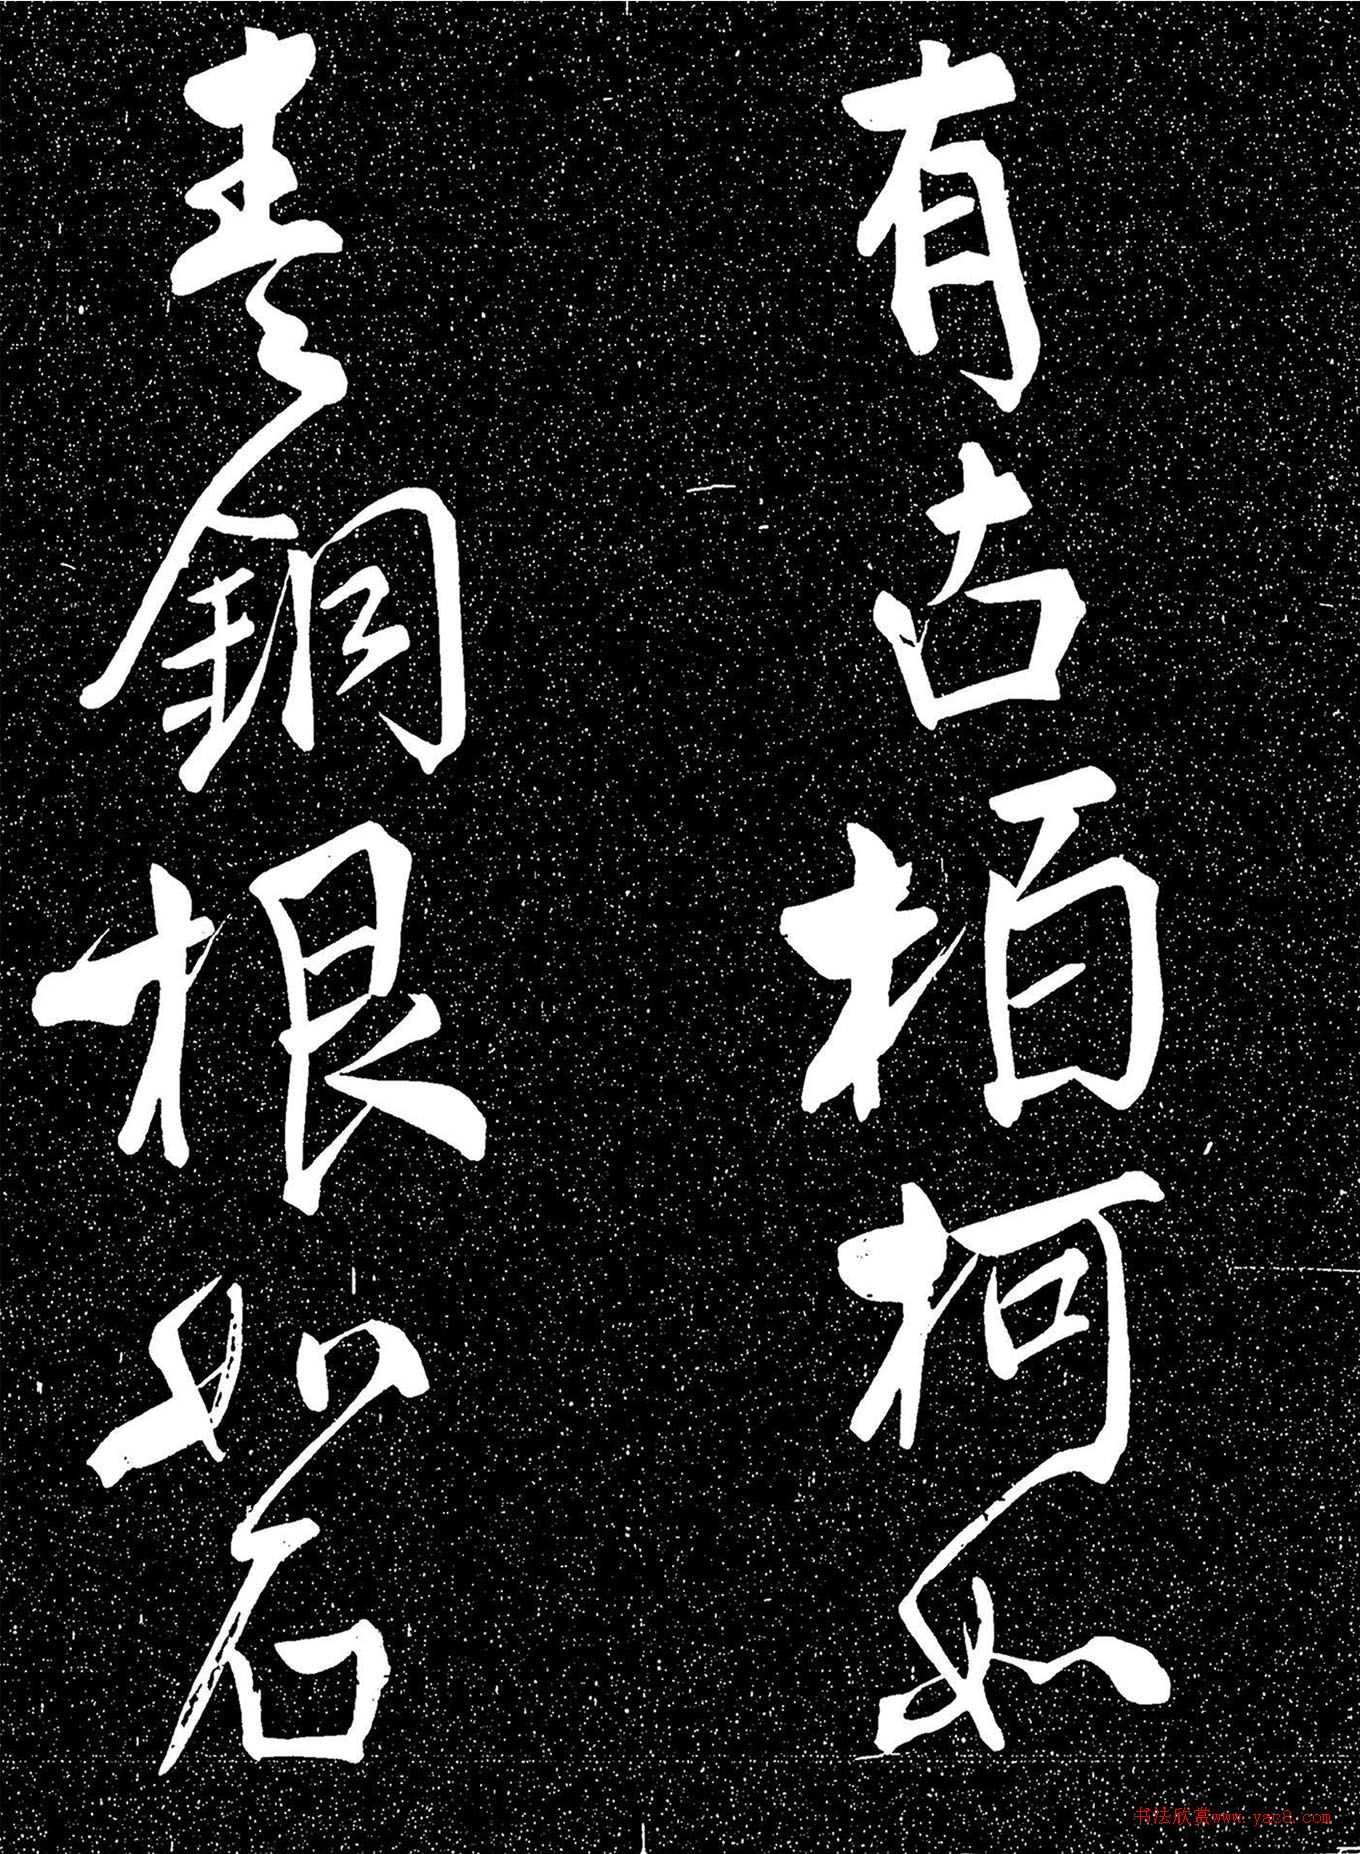 有古柏柯如
青銅根如石
书法欣赏www.yac8.com